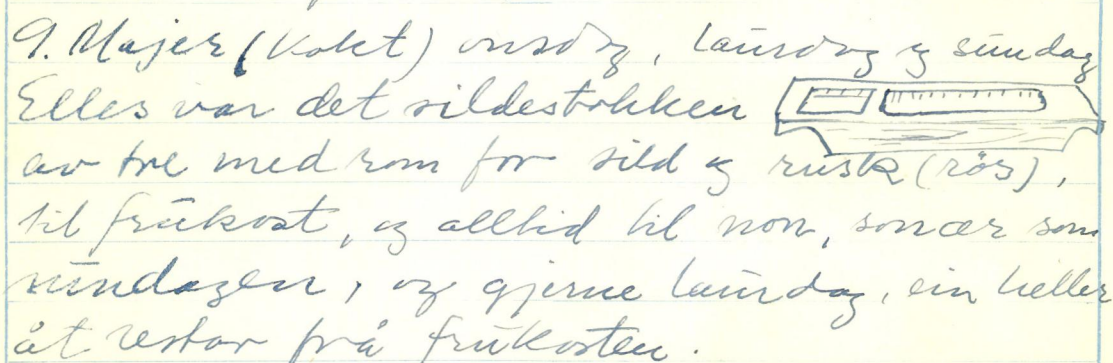 9. Majer (Kokt) onsdag, laurdag og sundag
Elles var det sildestokken
av tre med rom for sild og rusk (rös),
til frukost, og alltid til non, sonær som
sundagen, og gjerne laurdag, ein heller
åt restar frå frukosten.